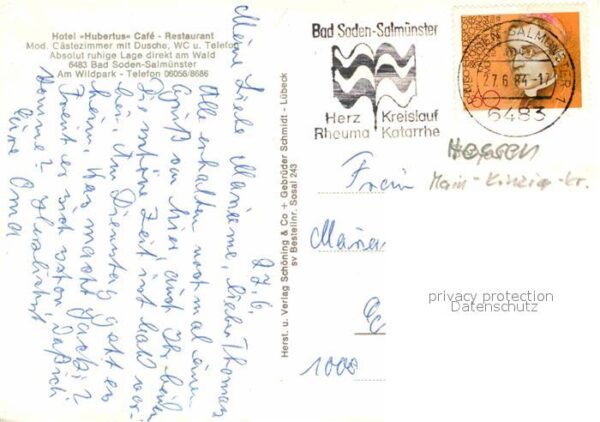 Hotel »Hubertus« Café - Restaurant
Mod. Gästezimmer mit Dusche, WC u. Telefon
Absolut ruhige Lage direkt am Wald
6483 Bad Soden-Salmünster
Am Wildpark - Telefon 06056/8686
27. 6.
Meine Liebe Marianne, lieber Thomas
Alle erhalten noch mal einen
Gruß von hier, auch Ihr beiden
Die schöne Zeit ist bald vor-
bei. Am Dienstag geht es
heim. Was macht
Freut er sich schon
Herzlichst
Eure Oma
Herst. u. Verlag Schöning & Co + Gebrüder Schmidt - Lübeck
sv Bestellnr. Sosal 243
Bad Soden-Salmünster
Herz Kreislauf
Rheuma Katarrhe
BAD SODEN-SALMÜNSTER 1
27.6.84-17
6483
60
Hessen
Main-Kinzig-Kr.
Frein
Marian
1000
privacy protection
Datenschutz